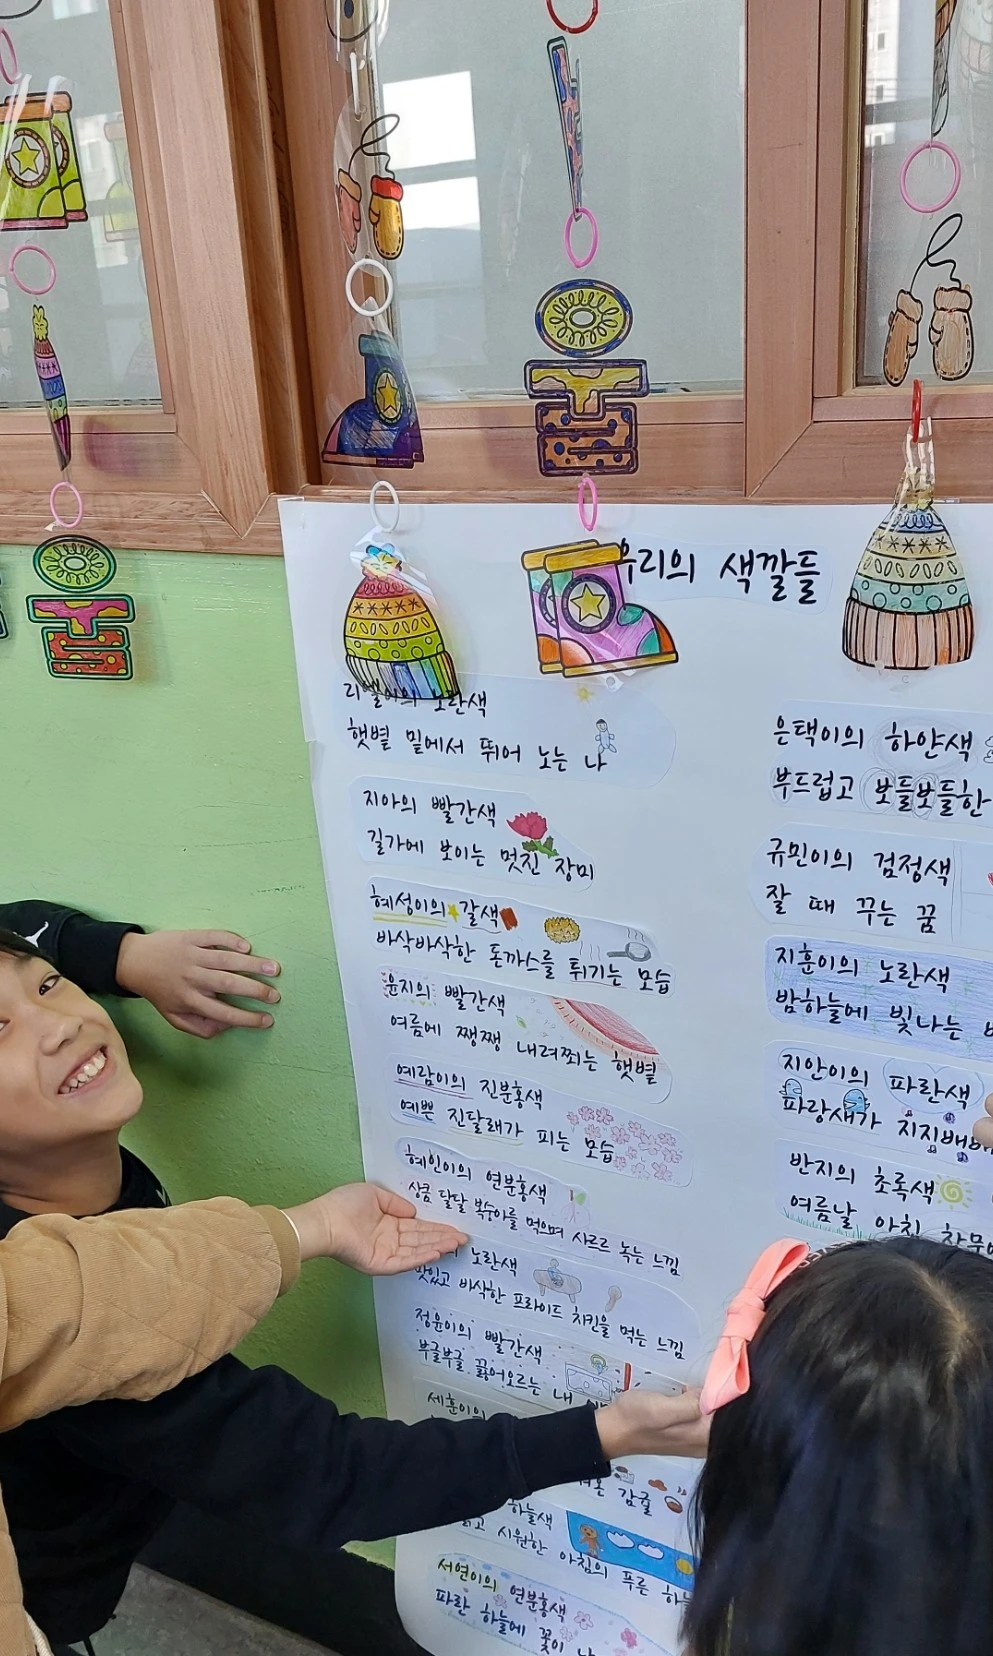 우리의 색깔들
리엘이의 노란색
햇볕 밑에서 뛰어 노는 나
지아의 빨간색
길가에 보이는 멋진 장미
혜성이의 갈색
바삭바삭한 돈까스를 튀기는 모습
윤지의 빨간색
여름에 쨍쨍 내려쬐는 햇볕
예람이의 진분홍색
예쁜 진달래가 피는 모습
혜인이의 연분홍색
상큼 달달 복숭아를 먹으며 사르르 녹는 느낌
노란색
맛있고 바삭한 프라이드 치킨을 먹는 느낌
정윤이의 빨간색
부글부글 끓어오르는 내
세훈이의
감귤
하늘색
시원한 아침의 푸른
서연이의 연분홍색
파란 하늘에 꽃이
은택이의 하얀색
부드럽고 보들보들한
규민이의 검정색
잘 때 꾸는 꿈
지훈이의 노란색
밤하늘에 빛나는
지안이의 파란색
파랑새가 지지배배
반지의 초록색
여름날 아침